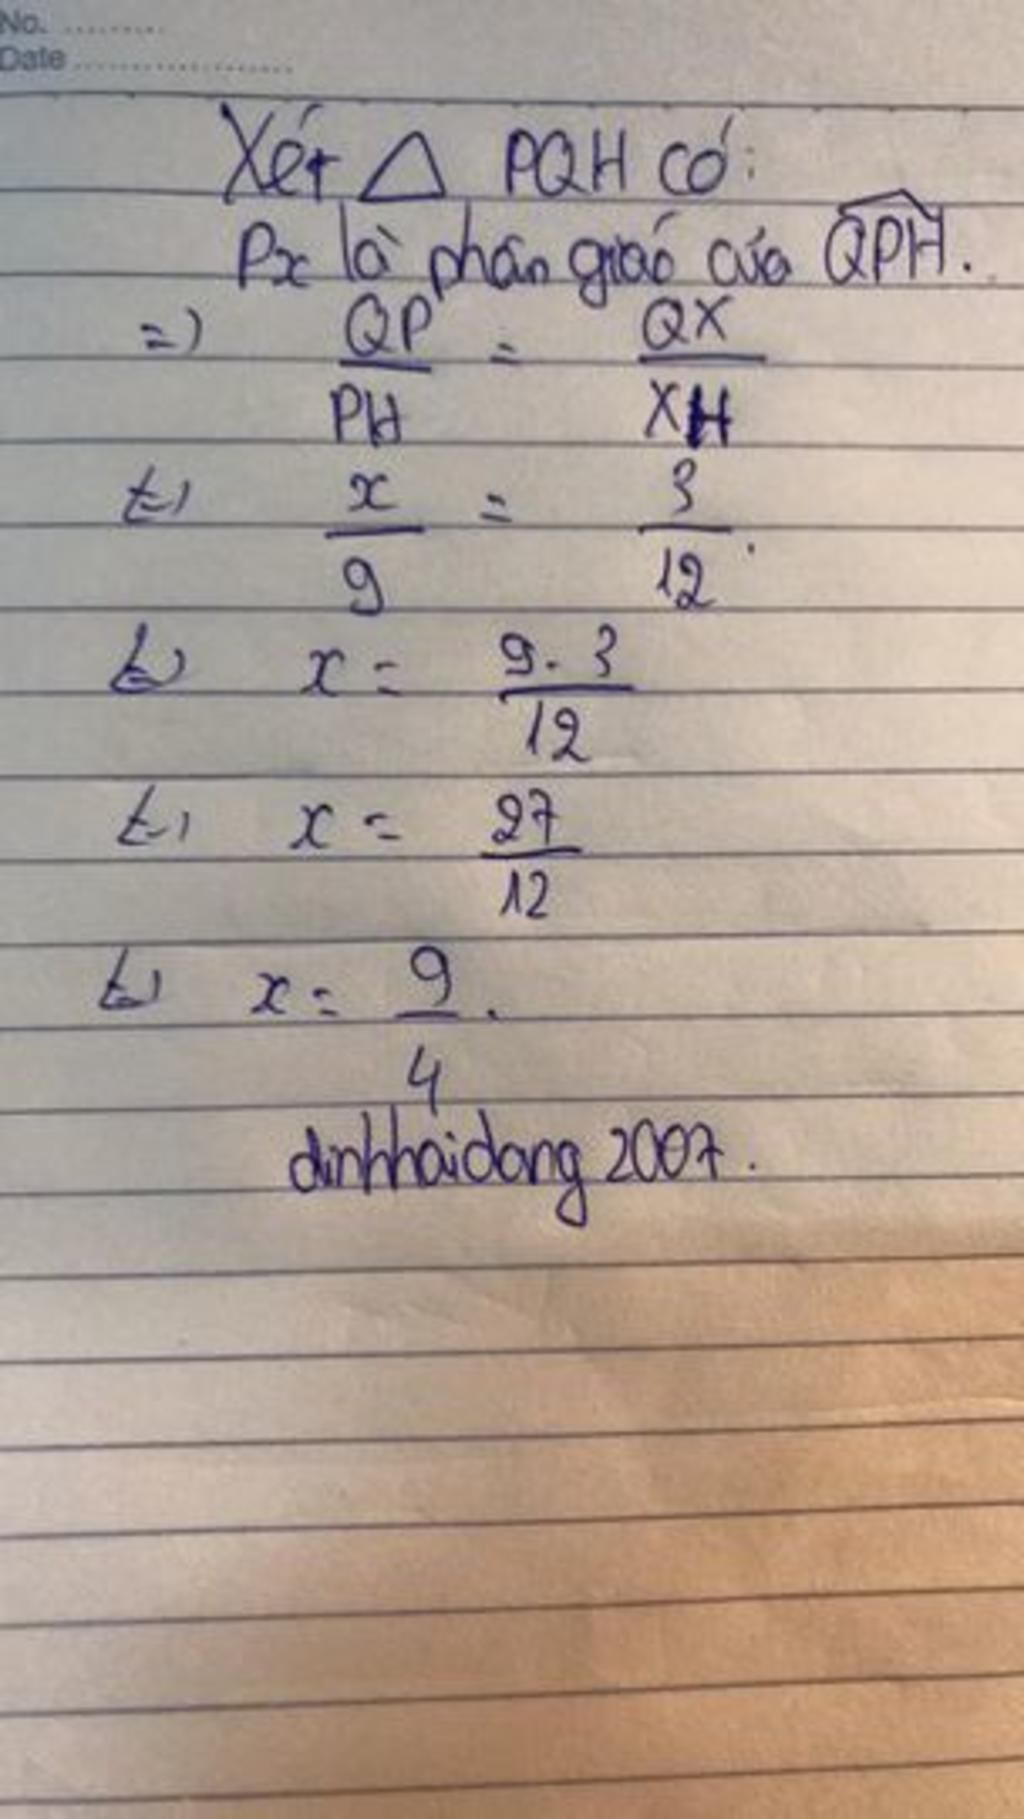 No. ..........
Date ......................
Xét △ PQH có:
Px là phân giáo của \widehat{QPH}.
=) \frac{QP}{PH} = \frac{QX}{XH}
(=) \frac{x}{9} = \frac{3}{12}.
(=) x = \frac{9.3}{12}
(=) x = \frac{27}{12}
(=) x = \frac{9}{4}.
dinhhaidang 2007.